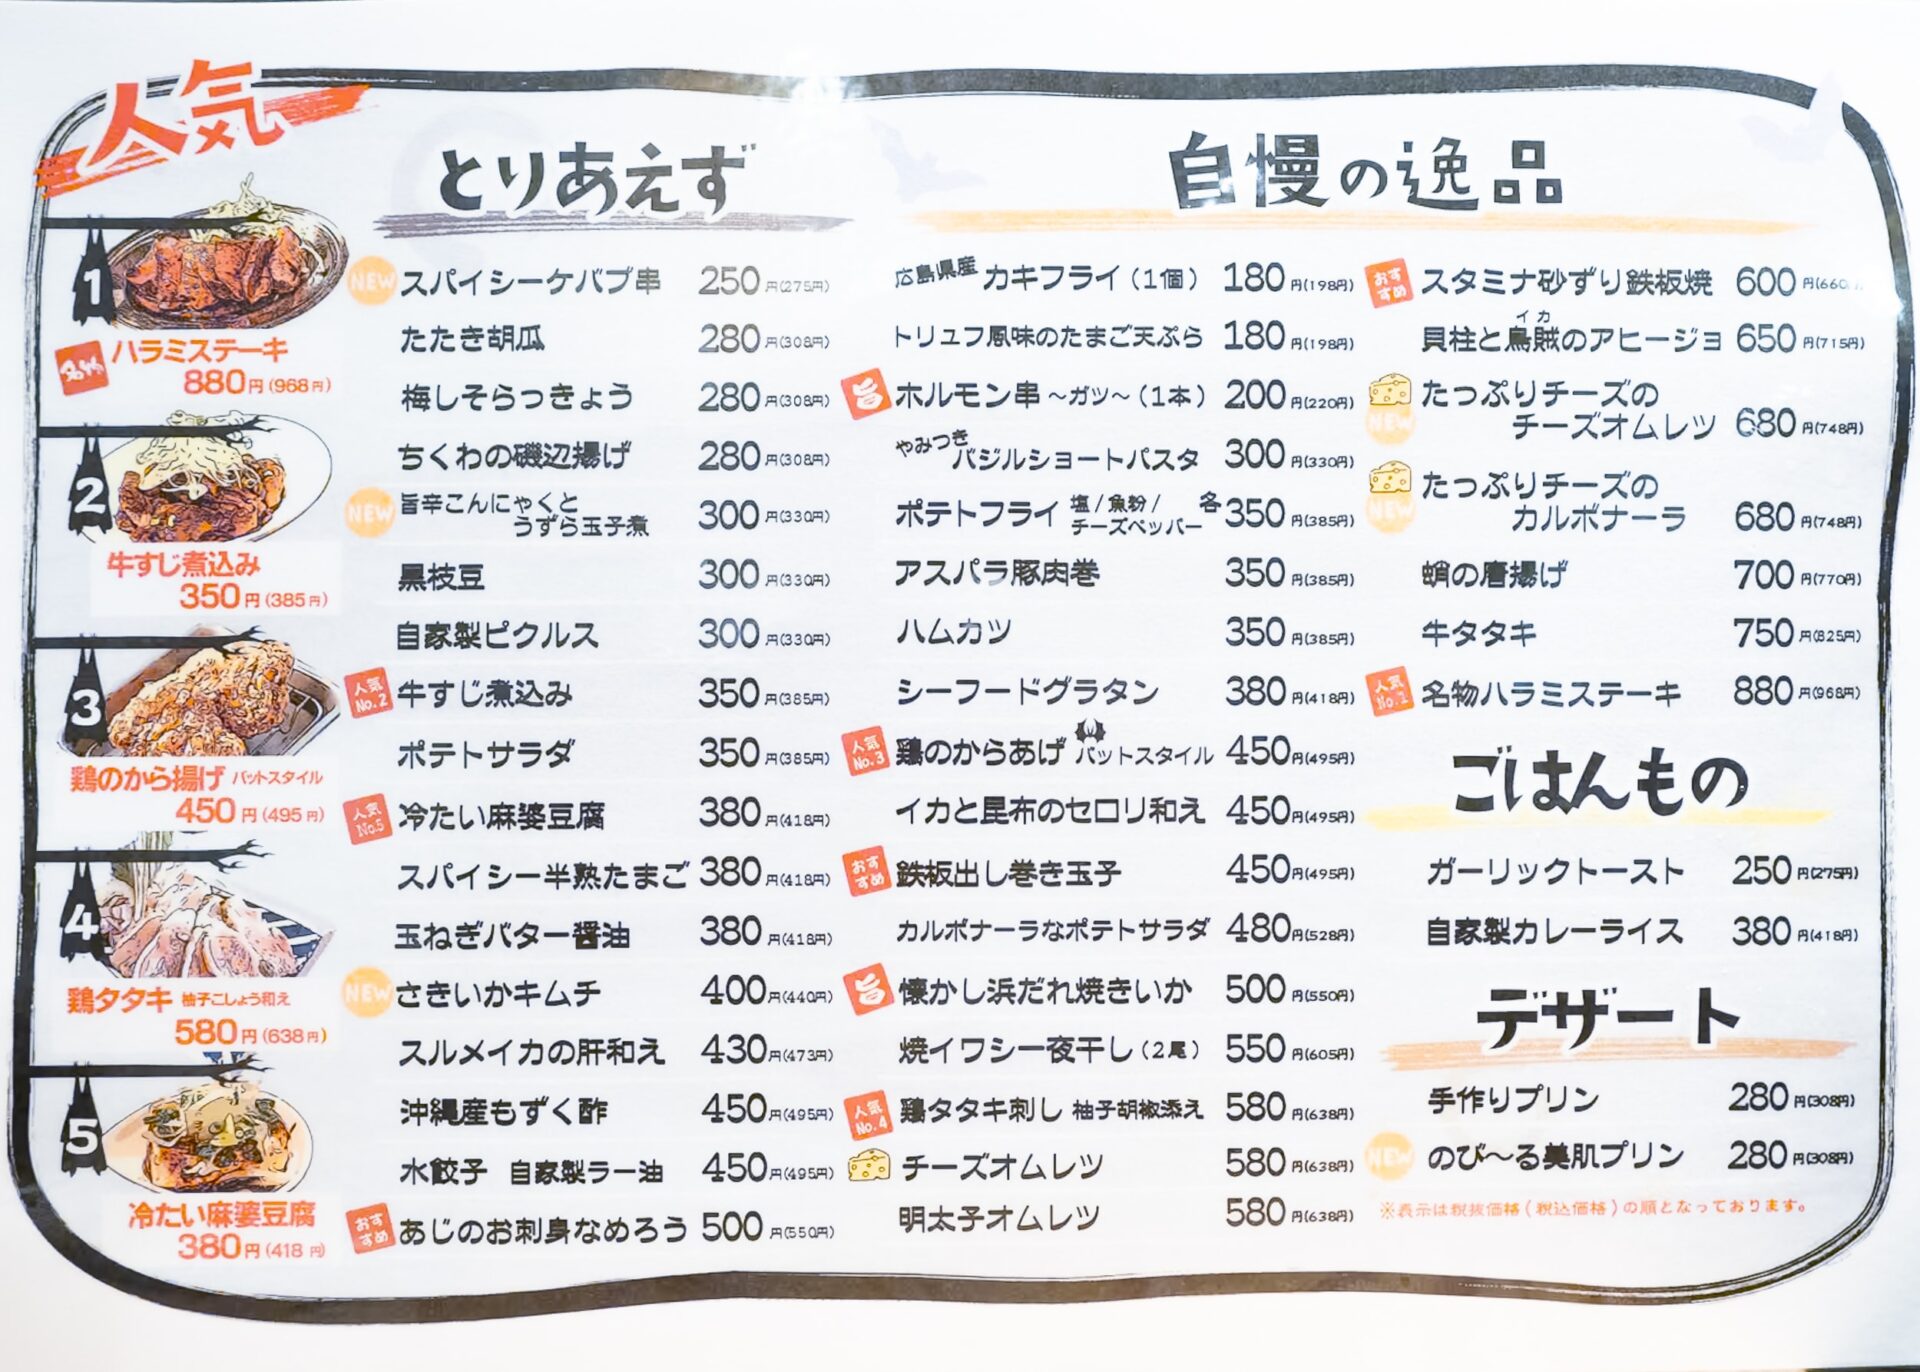 人気
1
名物
ハラミステーキ
880円(968円)
2
牛すじ煮込み
350円(385円)
3
鶏のから揚げ バットスタイル
450円(495円)
4
鶏タタキ 柚子こしょう和え
580円(638円)
5
冷たい麻婆豆腐
380円(418円)
とりあえず
NEW スパイシーケバブ串 250円(275円)
たたき胡瓜 280円(308円)
梅しそらっきょう 280円(308円)
ちくわの磯辺揚げ 280円(308円)
NEW 旨辛こんにゃくと
うずら玉子煮 300円(330円)
黒枝豆 300円(330円)
自家製ピクルス 300円(330円)
人気No.2 牛すじ煮込み 350円(385円)
ポテトサラダ 350円(385円)
人気No.5 冷たい麻婆豆腐 380円(418円)
スパイシー半熟たまご 380円(418円)
玉ねぎバター醤油 380円(418円)
NEW さきいかキムチ 400円(440円)
スルメイカの肝和え 430円(473円)
沖縄産もずく酢 450円(495円)
水餃子 自家製ラー油 450円(495円)
おすすめ あじのお刺身なめろう 500円(550円)
自慢の逸品
広島県産 カキフライ(1個) 180円(198円)
トリュフ風味のたまご天ぷら 180円(198円)
旨 ホルモン串〜ガツ〜(1本) 200円(220円)
やみつき バジルショートパスタ 300円(330円)
ポテトフライ 塩/魚粉/
チーズペッパー 各350円(385円)
アスパラ豚肉巻 350円(385円)
ハムカツ 350円(385円)
シーフードグラタン 380円(418円)
人気No.3 鶏のからあげ バットスタイル 450円(495円)
イカと昆布のセロリ和え 450円(495円)
おすすめ 鉄板出し巻き玉子 450円(495円)
カルボナーラなポテトサラダ 480円(528円)
旨 懐かし浜だれ焼きいか 500円(550円)
焼イワシ一夜干し(2尾) 550円(605円)
人気No.4 鶏タタキ刺し 柚子胡椒添え 580円(638円)
チーズオムレツ 580円(638円)
明太子オムレツ 580円(638円)
おすすめ スタミナ砂ずり鉄板焼 600円(660
イカ
貝柱と烏賊のアヒージョ 650円(715円)
たっぷりチーズの
NEW チーズオムレツ 680円(748円)
たっぷりチーズの
NEW カルボナーラ 680円(748円)
蛸の唐揚げ 700円(770円)
牛タタキ 750円(825円)
人気No.1 名物ハラミステーキ 880円(968円)
ごはんもの
ガーリックトースト 250円(275円)
自家製カレーライス 380円(418円)
デザート
手作りプリン 280円(308円)
NEW のび〜る美肌プリン 280円(308円)
※表示は税抜価格(税込価格)の順となっております。